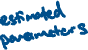 estimated
parameters